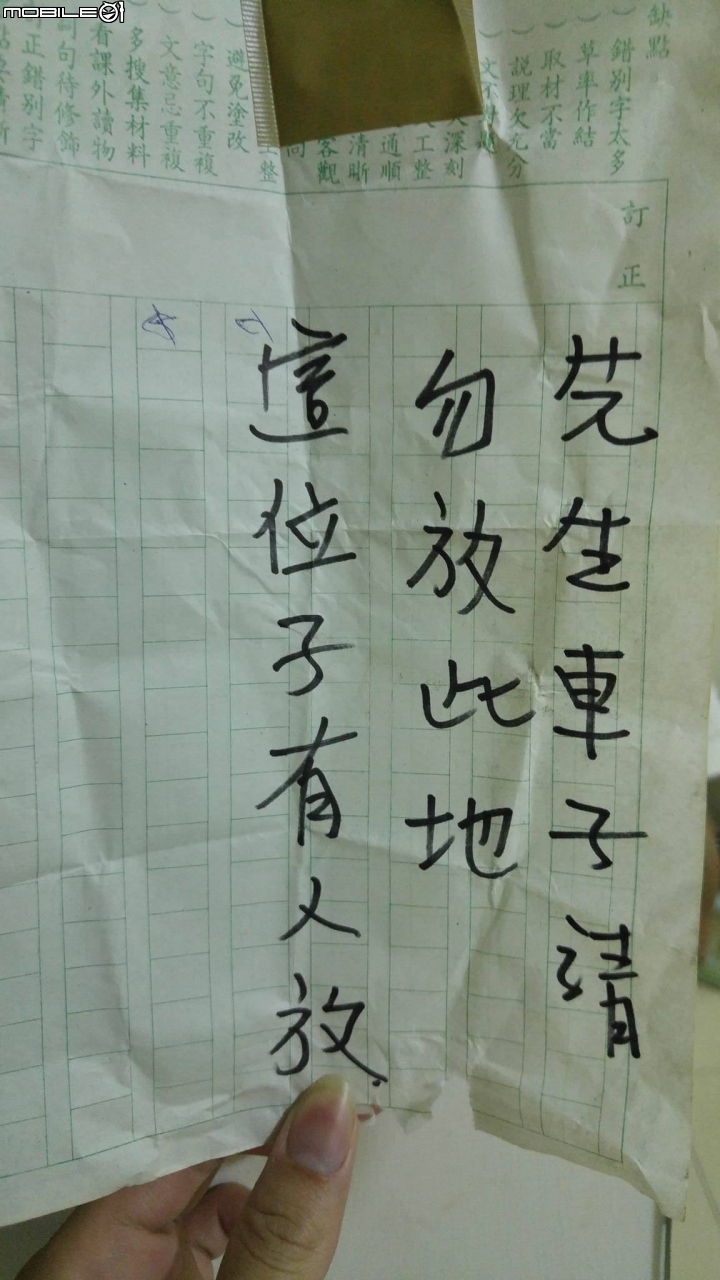 MOBILE01
缺點
錯別字太多
草率作結
取材不當
說理欠充分
深刻
工整
通順
清晰
客觀
工整
避免塗改
字句不重複
文意忌重複
多搜集材料
看課外讀物
詞句待修飾
正錯別字
訂正
先生車子請
勿放此地
這位子有人放